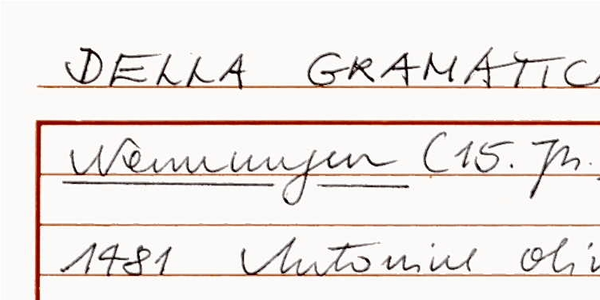 DELLA GRAMATIC
Nennungen (15. Jh.
1481 Antonius oli